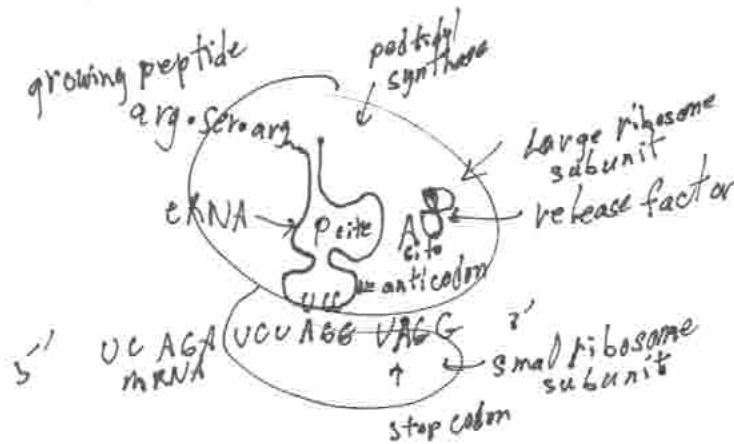 growing peptide
arg • ser • arg
peptidyl
synthase
Large ribosome
subunit
tRNA
P site
A
site
release factor
anticodon
UCC
5' UC AGA UCU AGG UAG G 3'
mRNA
small ribosome
subunit
stop codon